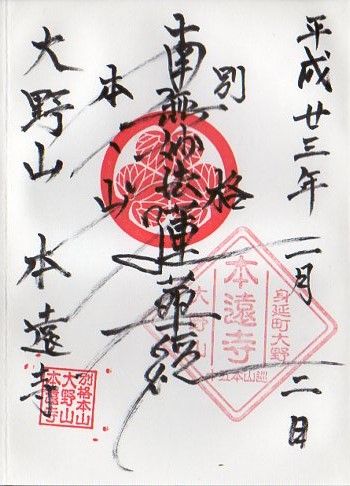 平成廿三年 一月 二日
別格
南無妙法蓮華経
本山
大野山 本遠寺
身延町大野
本遠寺
大野山
別格本山
大野山
本遠寺